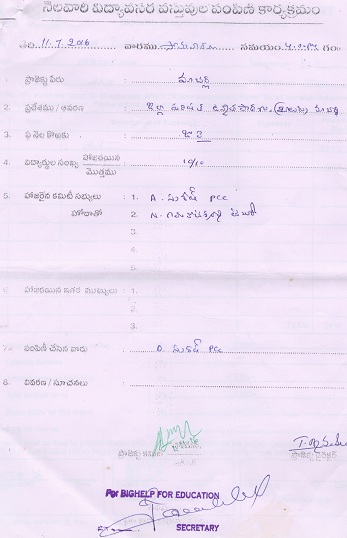 నెలవారి విద్యావసర వస్తువుల పంపిణీ కార్యక్రమం
తేది. 11.7.2016 వారము. సోమవారం సమయం.
1. ప్రాజెక్టు పేరు : మాచర్ల
2. ప్రదేశము / ఆవరణ : జిల్లా పరిషత్ ఉన్నత పాఠశాల, మాచర్ల
3. ఏ నెల కొరకు : జూ
4. విద్యార్థుల సంఖ్య హాజరయిన / మొత్తము : 10/10
5. హాజరైన కమిటీ సభ్యులు : 1. A. సురేష్ PCC
హోదాతో 2. N.
3.
4.
5.
6. హాజరయిన ఇతర ముఖ్యులు : 1.
2.
3.
7. పంపిణీ చేసిన వారు : A. సురేష్ PCC
8. వివరణ / సూచనలు :
ప్రాజెక్టు ప్రాజెక్టు డైరెక్టర్
For BIGHELP FOR EDUCATION
SECRETARY